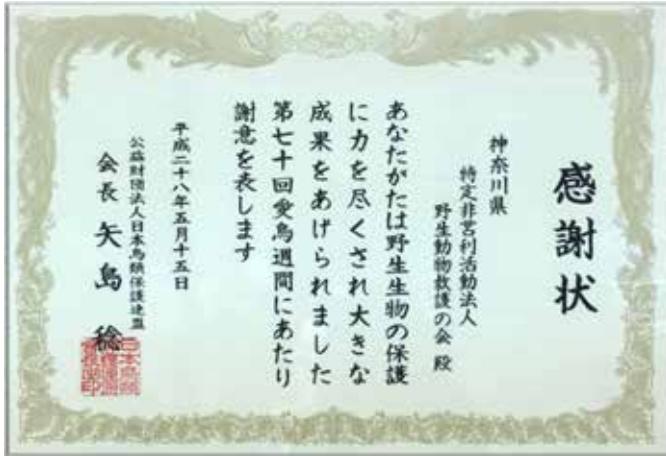 感謝状
神奈川県
特定非営利活動法人
野生動物救護の会 殿
あなたがたは野生生物の保護
に力を尽くされ大きな
成果をあげられました
第七十回愛鳥週間にあたり
謝意を表します
平成二十八年五月十五日
公益財団法人日本鳥類保護連盟
会長 矢島 稔